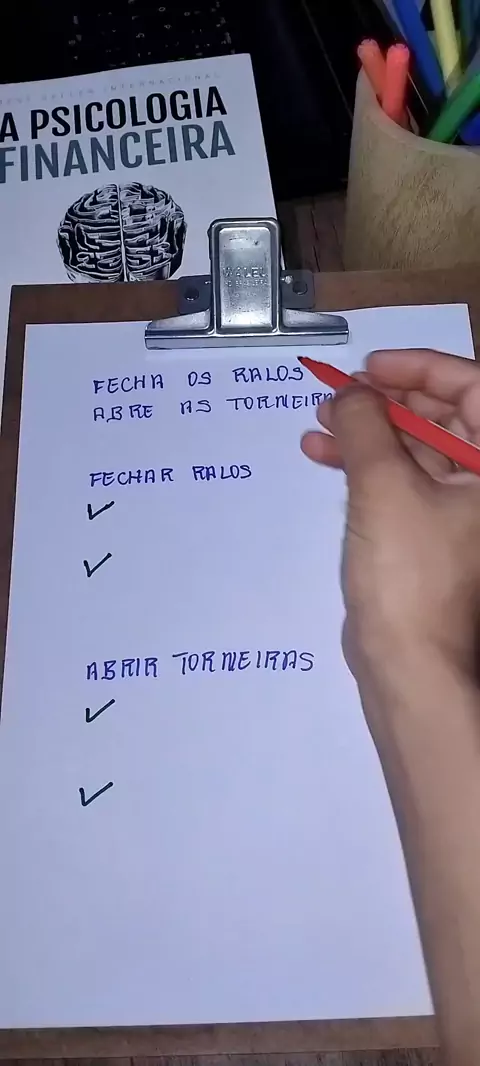 BEST SELLER INTERNACIONAL
A PSICOLOGIA
FINANCEIRA
FECHA OS RALOS
ABRE AS TORNEIRA
FECHAR RALOS
ABRIR TORNEIRAS